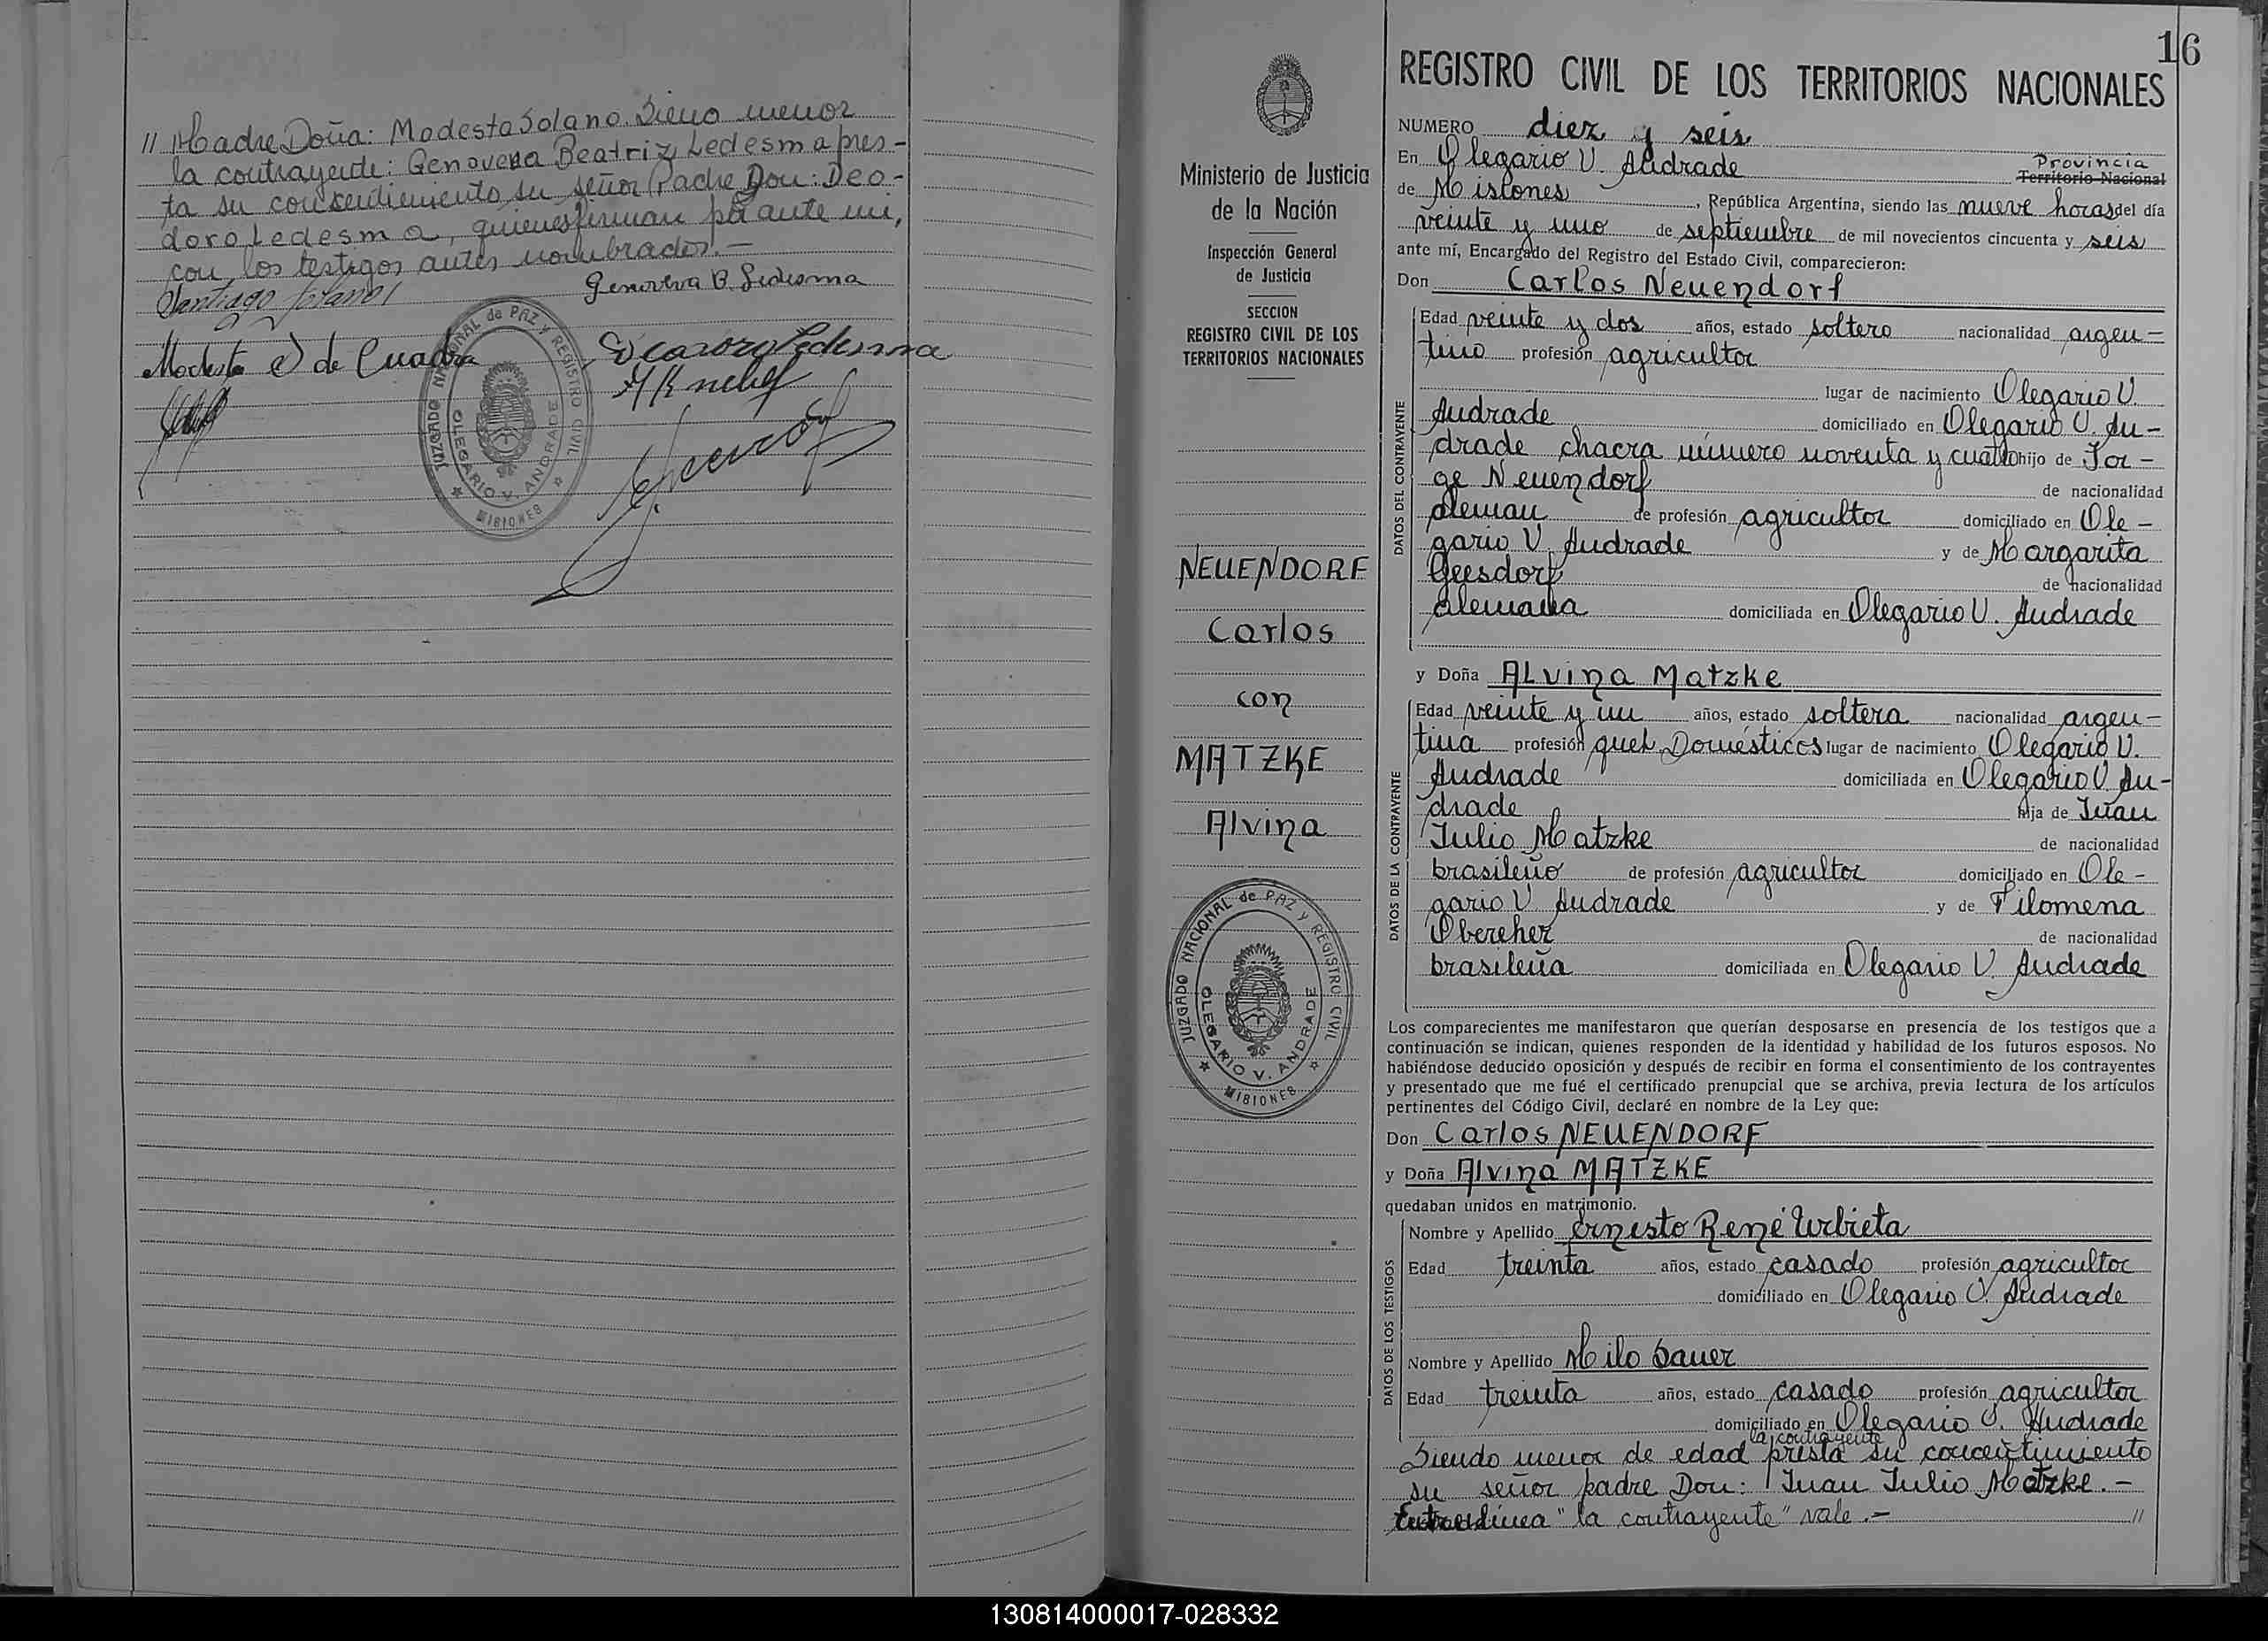 // Madre Doña: Modesta Solano. Sieno menor
la contrayente: Genoveva Beatriz Ledesma pres-
ta su consentimiento su señor Padre Don: Deo-
doro Ledesma, quienes firman por ante mi,
con los testigos antes nombrados. —
Genoveva B. Ledesma
Modesta S de Cuadra
JUZGADO NACIONAL de PAZ y REGISTRO CIVIL
OLEGARIO V. ANDRADE
MISIONES
16
Ministerio de Justicia
de la Nación
Inspección General
de Justicia
SECCION
REGISTRO CIVIL DE LOS
TERRITORIOS NACIONALES
NEUENDORF
Carlos
con
MATZKE
Alvina
JUZGADO NACIONAL de PAZ y REGISTRO CIVIL
OLEGARIO V. ANDRADE
MISIONES
REGISTRO CIVIL DE LOS TERRITORIOS NACIONALES
NUMERO diez y seis
En Olegario V. Andrade Provincia Territorio Nacional
de Misiones, República Argentina, siendo las nueve horas del día
veinte y uno de septiembre de mil novecientos cincuenta y seis
ante mí, Encargado del Registro del Estado Civil, comparecieron:
Don Carlos Neuendorf
DATOS DEL CONTRAYENTE
Edad veinte y dos años, estado soltero nacionalidad argen-
tino profesión agricultor
lugar de nacimiento Olegario V.
Andrade domiciliado en Olegario V. An-
drade chacra número noventa y cuatro hijo de Jor-
ge Neuendorf de nacionalidad
aleman de profesión agricultor domiciliado en Ole-
gario V. Andrade y de Margarita
Geesdorf de nacionalidad
alemana domiciliada en Olegario V. Andrade
y Doña Alvina Matzke
DATOS DE LA CONTRAYENTE
Edad veinte y un años, estado soltera nacionalidad argen-
tina profesión queh. Domésticos lugar de nacimiento Olegario V.
Andrade domiciliada en Olegario V. An-
drade hija de Juan
Julio Matzke de nacionalidad
brasileño de profesión agricultor domiciliado en Ole-
gario V. Andrade y de Filomena
Obereher de nacionalidad
brasileña domiciliada en Olegario V. Andrade
Los comparecientes me manifestaron que querían desposarse en presencia de los testigos que a
continuación se indican, quienes responden de la identidad y habilidad de los futuros esposos. No
habiéndose deducido oposición y después de recibir en forma el consentimiento de los contrayentes
y presentado que me fué el certificado prenupcial que se archiva, previa lectura de los artículos
pertinentes del Código Civil, declaré en nombre de la Ley que:
Don Carlos NEUENDORF
y Doña Alvina MATZKE
quedaban unidos en matrimonio.
DATOS DE LOS TESTIGOS
Nombre y Apellido Ernesto René Urbieta
Edad treinta años, estado casado profesión agricultor
domiciliado en Olegario V. Andrade
Nombre y Apellido Milo Sauer
Edad treinta años, estado casado profesión agricultor
domiciliado en Olegario V. Andrade
la contrayente
Siendo menor de edad presta su concentimiento
su señor padre Don: Juan Julio Matzke. —
Entrelínea "la contrayente" vale. — //
130814000017-028332